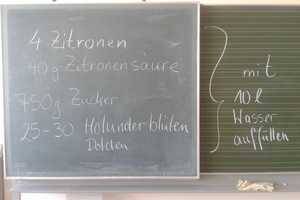 4 Zitronen
40g Zitronensäure
750g Zucker
25-30 Holunderblüten
Dolden
mit
10 l
Wasser
auffüllen